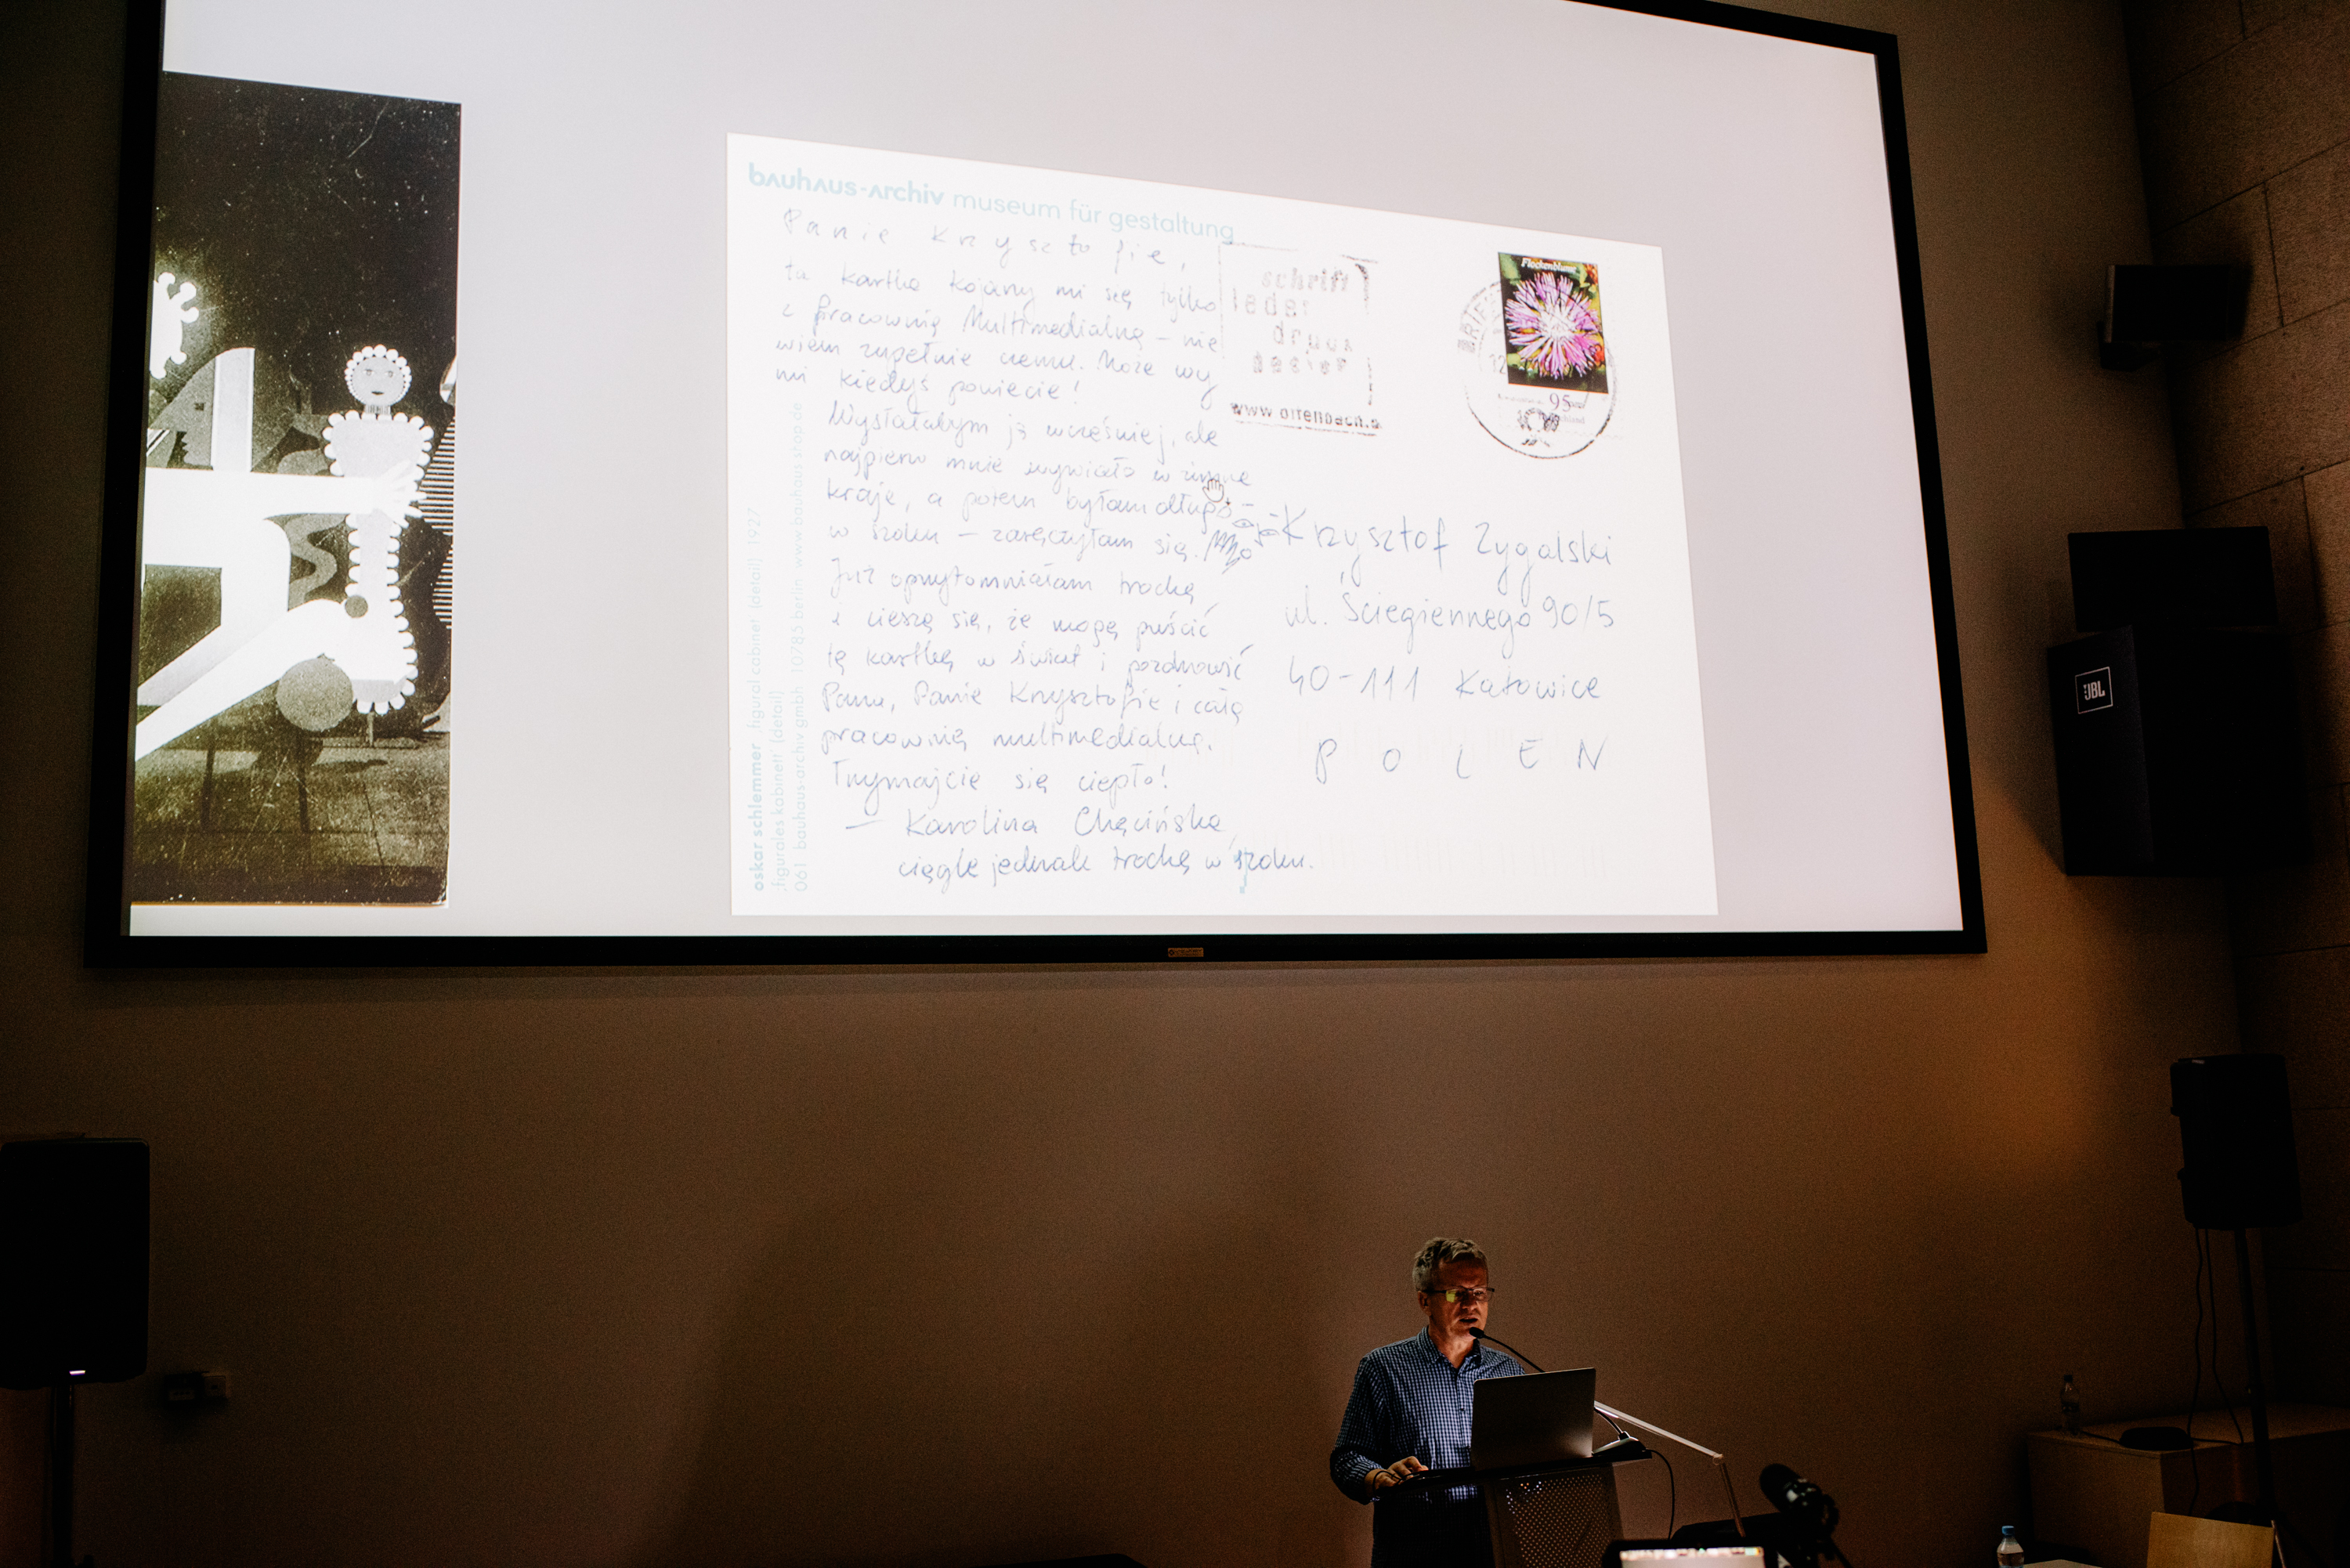 bauhaus-archiv museum für gestaltung
Panie Krzysztofie,
ta kartka kojarzy mi się tylko
z Pracownią Multimedialną – nie
wiem zupełnie czemu. Może wy
mi kiedyś powiecie!
Wysłałabym ją wcześniej, ale
najpierw mnie wywiało w zimne
kraje, a potem byłam długo
w szoku – zaręczyłam się.
Już oprzytomniałam trochę
i cieszę się, że mogę puścić
tę kartkę w świat i pozdrowić
Pana, Panie Krzysztofie i całą
pracownię multimedialną.
Trzymajcie się ciepło!
— Karolina Chęcińska,
ciągle jednak trochę w szoku.
schrift
leder
druck
www.offenbach.
Flockenblume
BRIEF
12
95
Krzysztof Zygalski
ul. Ściegiennego 90/5
40-111 Katowice
POLEN
oskar schlemmer figural cabinet (detail) 1927
figurales kabinett (detail)
061 bauhaus-archiv gmbh 10785 berlin www.bauhaus-shop.de
JBL